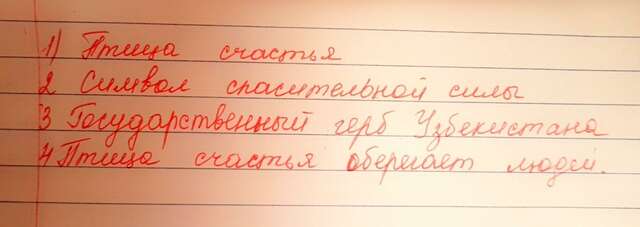 1) Птица счастья
2 Символ спасительной силы
3 Государственный герб Узбекистана
4 Птица счастья оберегает людей.